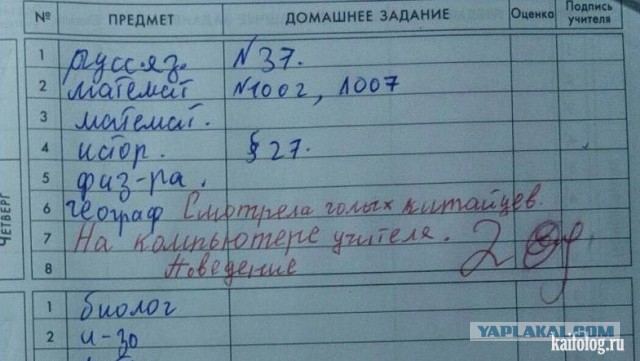 № ПРЕДМЕТ ДОМАШНЕЕ ЗАДАНИЕ Оценка Подпись учителя
ЧЕТВЕРГ
1 русс.яз. №37.
2 математ №1002, 1007
3 математ.
4 истор. §27.
5 физ-ра.
6 географ Смотрела голых китайцев.
7 На компьютере учителя. 2
8 Поведение
1 биолог
2 и-зо
YAPLAKAL.COM
kaifolog.ru